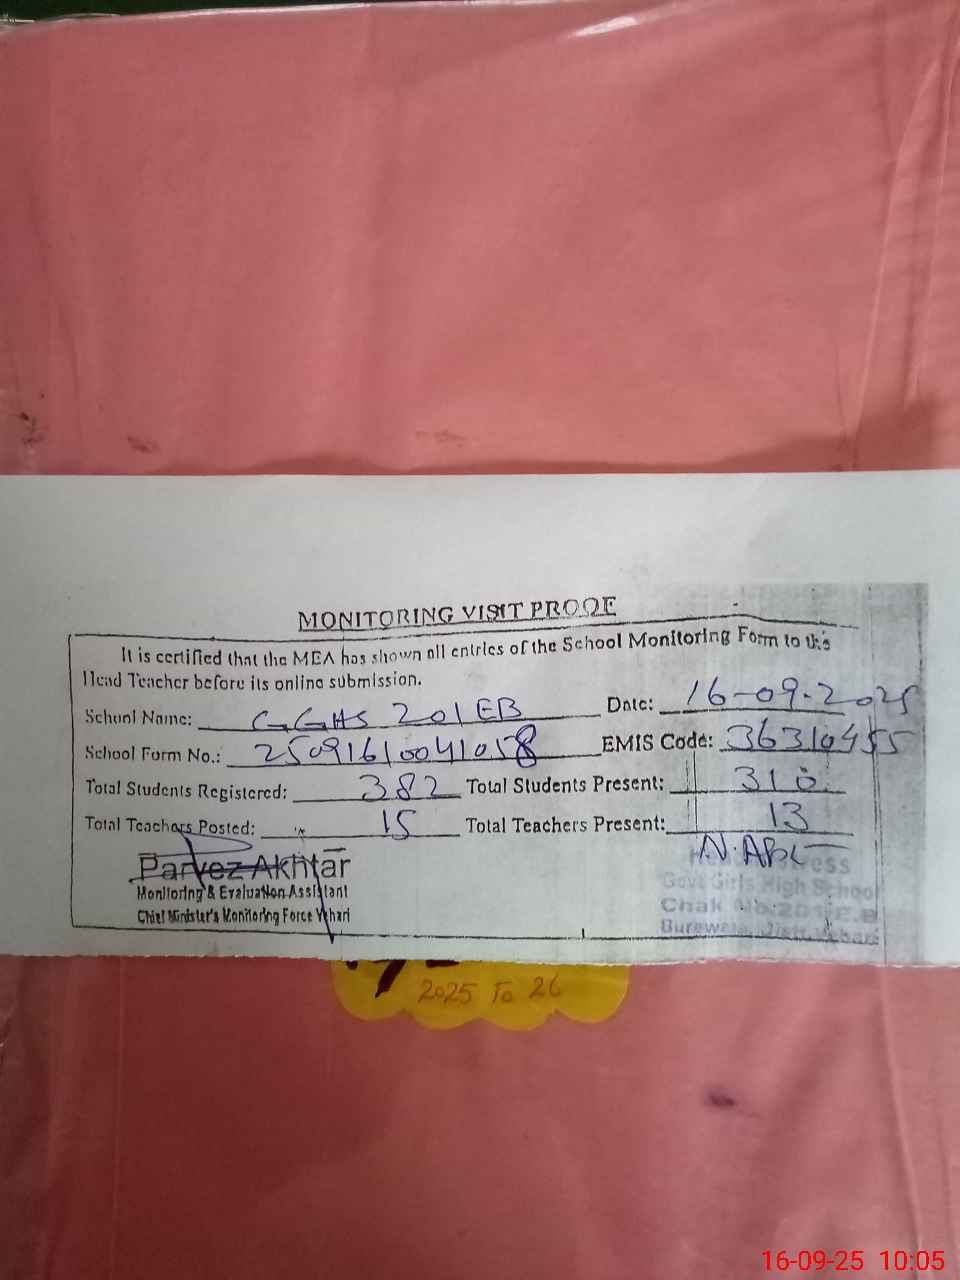 MONITORING VISIT PROOF
It is certified that the MEA has shown all entries of the School Monitoring Form to the
Head Teacher before its online submission.
School Name: GGHS 201 EB Date: 16-09-2025
School Form No.: 25091610041058 EMIS Code: 36310455
Total Students Registered: 382 Total Students Present: 310
Total Teachers Posted: 15 Total Teachers Present: 13
Parvez Akhtar
Monitoring & Evaluation Assistant
Chief Minister's Monitoring Force Vehari
Govt Girls High School
Chak No. 201/E.B
Burewala, Distt. Vehari
2025 To 26
16-09-25 10:05